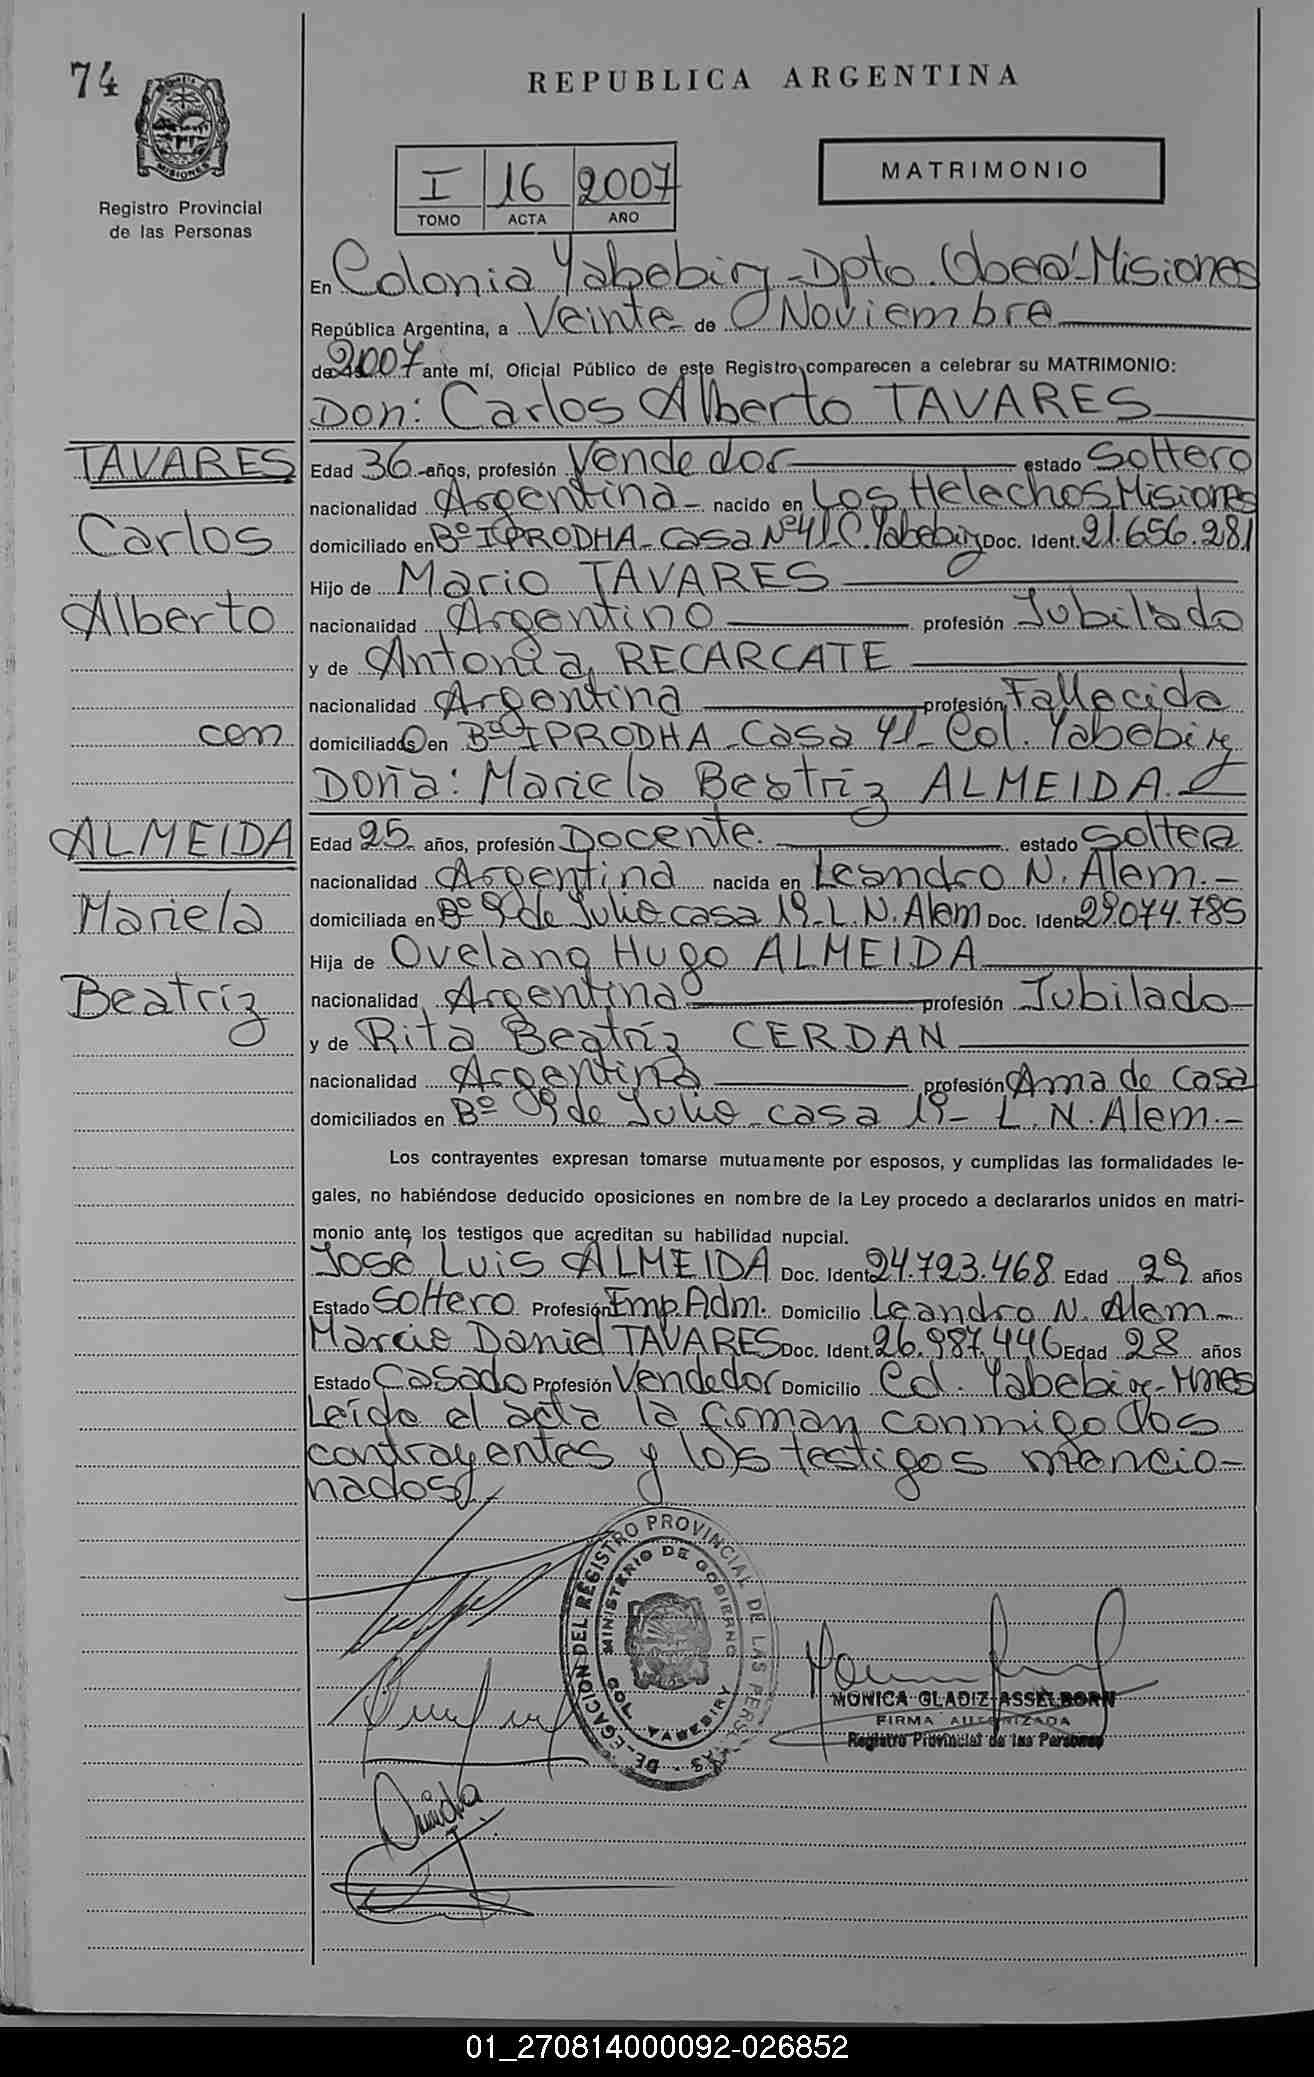 74
REPUBLICA ARGENTINA
MISIONES
Registro Provincial
de las Personas
I 16 2007
TOMO ACTA AÑO
MATRIMONIO
En Colonia Yabebiry - Dpto. Oberá - Misiones
República Argentina, a Veinte de Noviembre
de 2007 ante mí, Oficial Público de este Registro comparecen a celebrar su MATRIMONIO:
Don: Carlos Alberto TAVARES
TAVARES
Carlos
Alberto
con
ALMEIDA
Mariela
Beatríz
Edad 36 años, profesión Vendedor estado Soltero
nacionalidad Argentina nacido en Los Helechos Misiones
domiciliado en Bº IPRODHA - Casa Nº 41 - C. Yabebiry Doc. Ident. 21.656.281
Hijo de Mario TAVARES
nacionalidad Argentino profesión Jubilado
y de Antonia RECARCATE
nacionalidad Argentina profesión Fallecida
domiciliado en Bº IPRODHA - Casa 41 - Col. Yabebiry
Doña: Mariela Beatríz ALMEIDA.
Edad 25 años, profesión Docente. estado Soltera
nacionalidad Argentina nacida en Leandro N. Alem.-
domiciliada en Bº 9 de Julio casa 19 - L.N. Alem Doc. Ident. 29.074.785
Hija de Ovelang Hugo ALMEIDA
nacionalidad Argentina profesión Jubilado
y de Rita Beatríz CERDAN
nacionalidad Argentina profesión Ama de casa
domiciliados en Bº 09 de Julio - casa 19 - L. N. Alem.-
Los contrayentes expresan tomarse mutuamente por esposos, y cumplidas las formalidades le-
gales, no habiéndose deducido oposiciones en nombre de la Ley procedo a declararlos unidos en matri-
monio ante los testigos que acreditan su habilidad nupcial.
José Luis ALMEIDA Doc. Ident. 24.723.468 Edad 29 años
Estado Soltero Profesión Emp. Adm. Domicilio Leandro N. Alem -
Marcio Daniel TAVARES Doc. Ident. 26.987.446 Edad 28 años
Estado Casado Profesión Vendedor Domicilio Col. Yabebiry - Mnes
Leído el acta la firman conmigo los
contrayentes y los testigos mencio-
nados
DELEGACION DEL REGISTRO PROVINCIAL DE LAS PERSONAS
MINISTERIO DE GOBIERNO
COL. YABEBIRY
MONICA GLADIZ ASSELBORN
FIRMA AUTORIZADA
Registro Provincial de las Personas
01_270814000092-026852